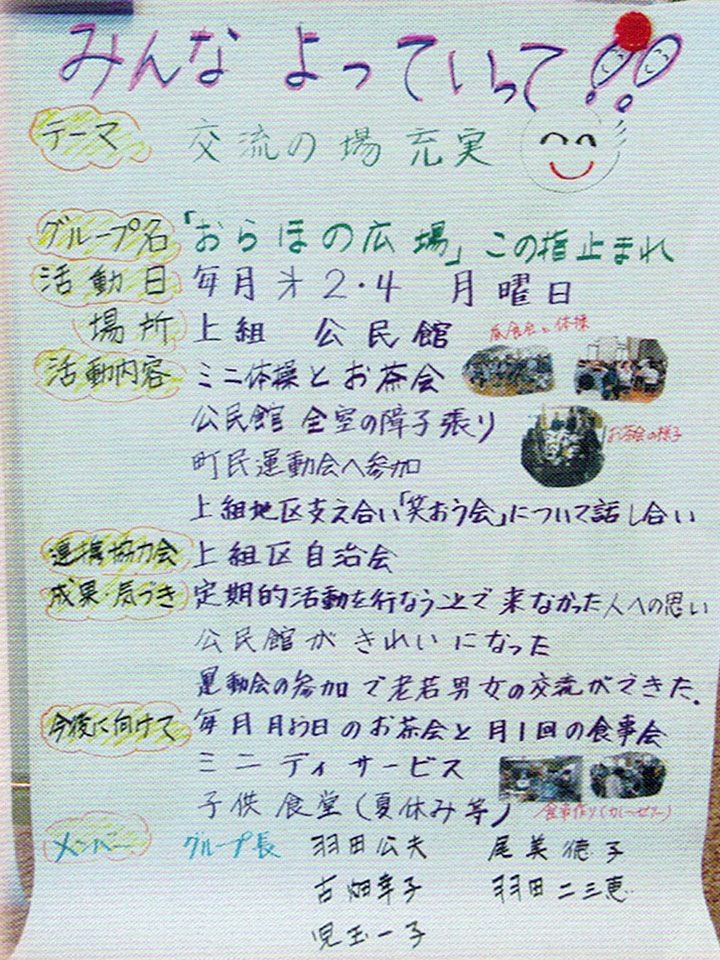 みんな よっていって!!
テーマ 交流の場 充実
グループ名 「おらほの広場」この指止まれ
活動日 毎月才2・4 月曜日
場所 上組 公民館
昼食会と体操
活動内容 ミニ体操とお茶会
公民館 全室の障子張り
お茶会の様子
町民運動会へ参加
上組地区支え合い「笑おう会」について話し合い
連携協力会 上組区自治会
成果・気づき 定期的活動を行なうことで来なかった人への思い
公民館がきれいになった
運動会の参加で老若男女の交流ができた。
今後に向けて 毎月月お日のお茶会と月1回の食事会
ミニディサービス
子供食堂(夏休み等)
食事作り(カレーゼリー)
メンバー グループ長 羽田公夫 尾美徳子
古畑幸子 羽田二三恵
児玉一子